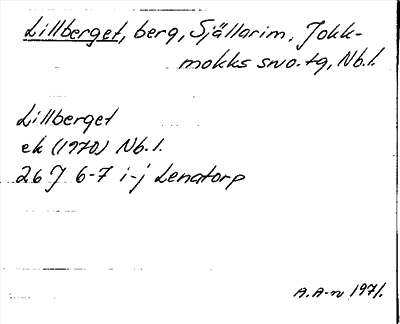 Lillberget, berg, Själlarim, Jokk-
mokks svo.tg, Nb.l.
Lillberget
ek (1970) Nb.l.
26 J 6-7 i-j Lenatorp
A. A-n 1971.